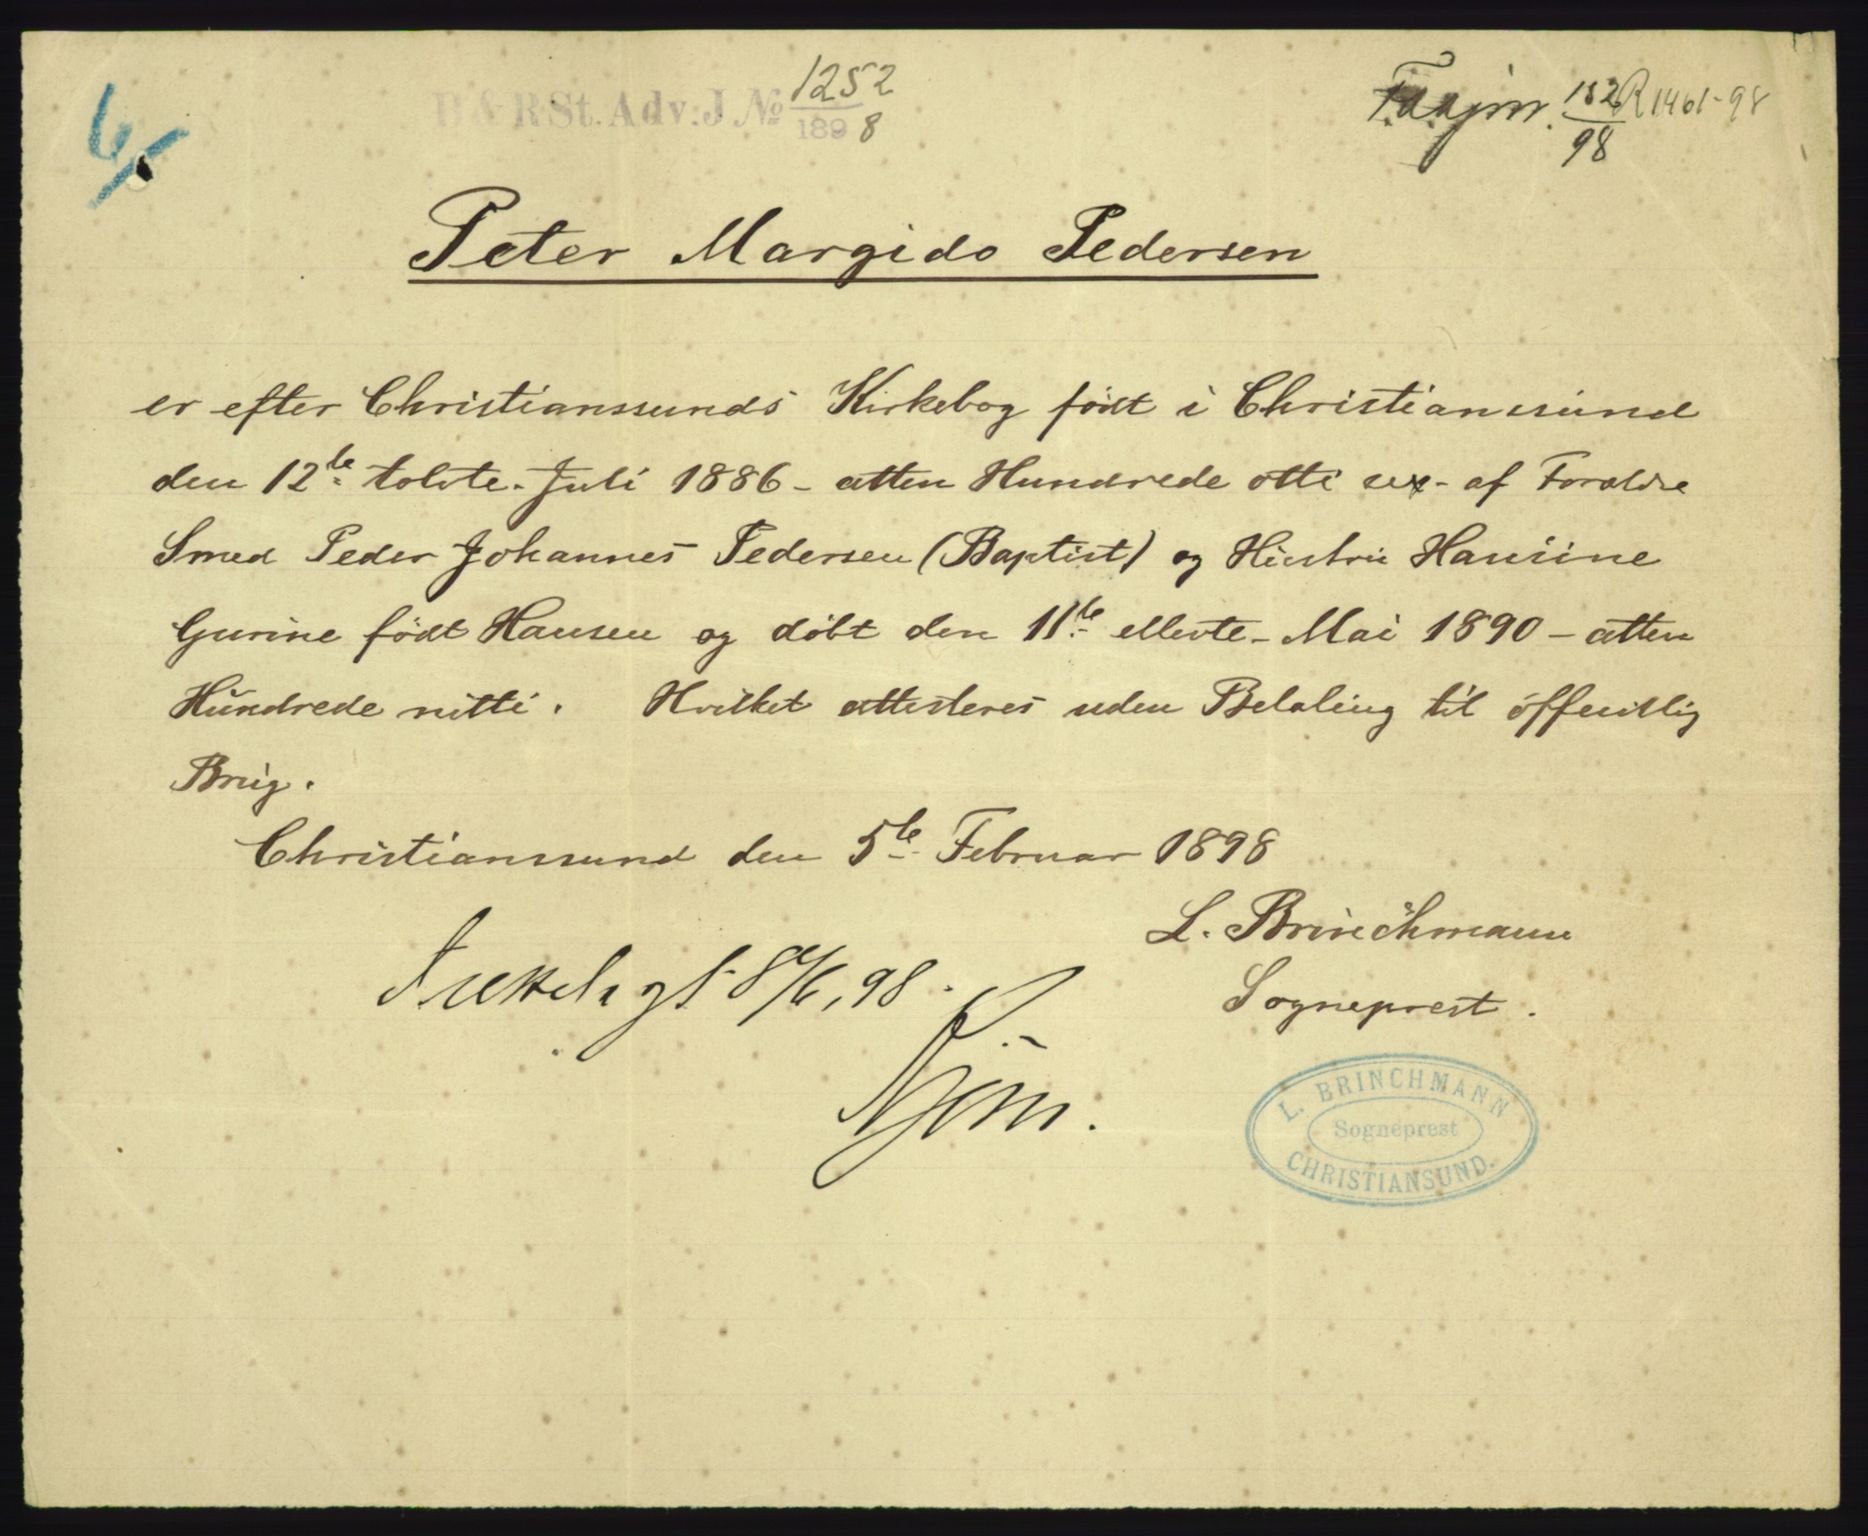 6/5
B & R St. Adv: J. № 1252/1898
152/98 R 1461-98
Peter Margido Pedersen
er efter Christianssunds Kirkebog født i Christianssund
den 12te tolvte. Juli 1886 - atten Hundrede otti sex - af Forældre
Smed Peder Johannes Pedersen (Baptist) og Hustru Hansine
Gurine født Hansen og døbt den 11te ellevte - Mai 1890 - atten
Hundrede nitti. Hvilket attesteres uden Betaling til offentlig
Brug.
Christianssund den 5te Februar 1898
L. Brinchmann
Sogneprest.
Fremlagt 8/6, 98.
L. BRINCHMANN
Sogneprest
CHRISTIANSUND.